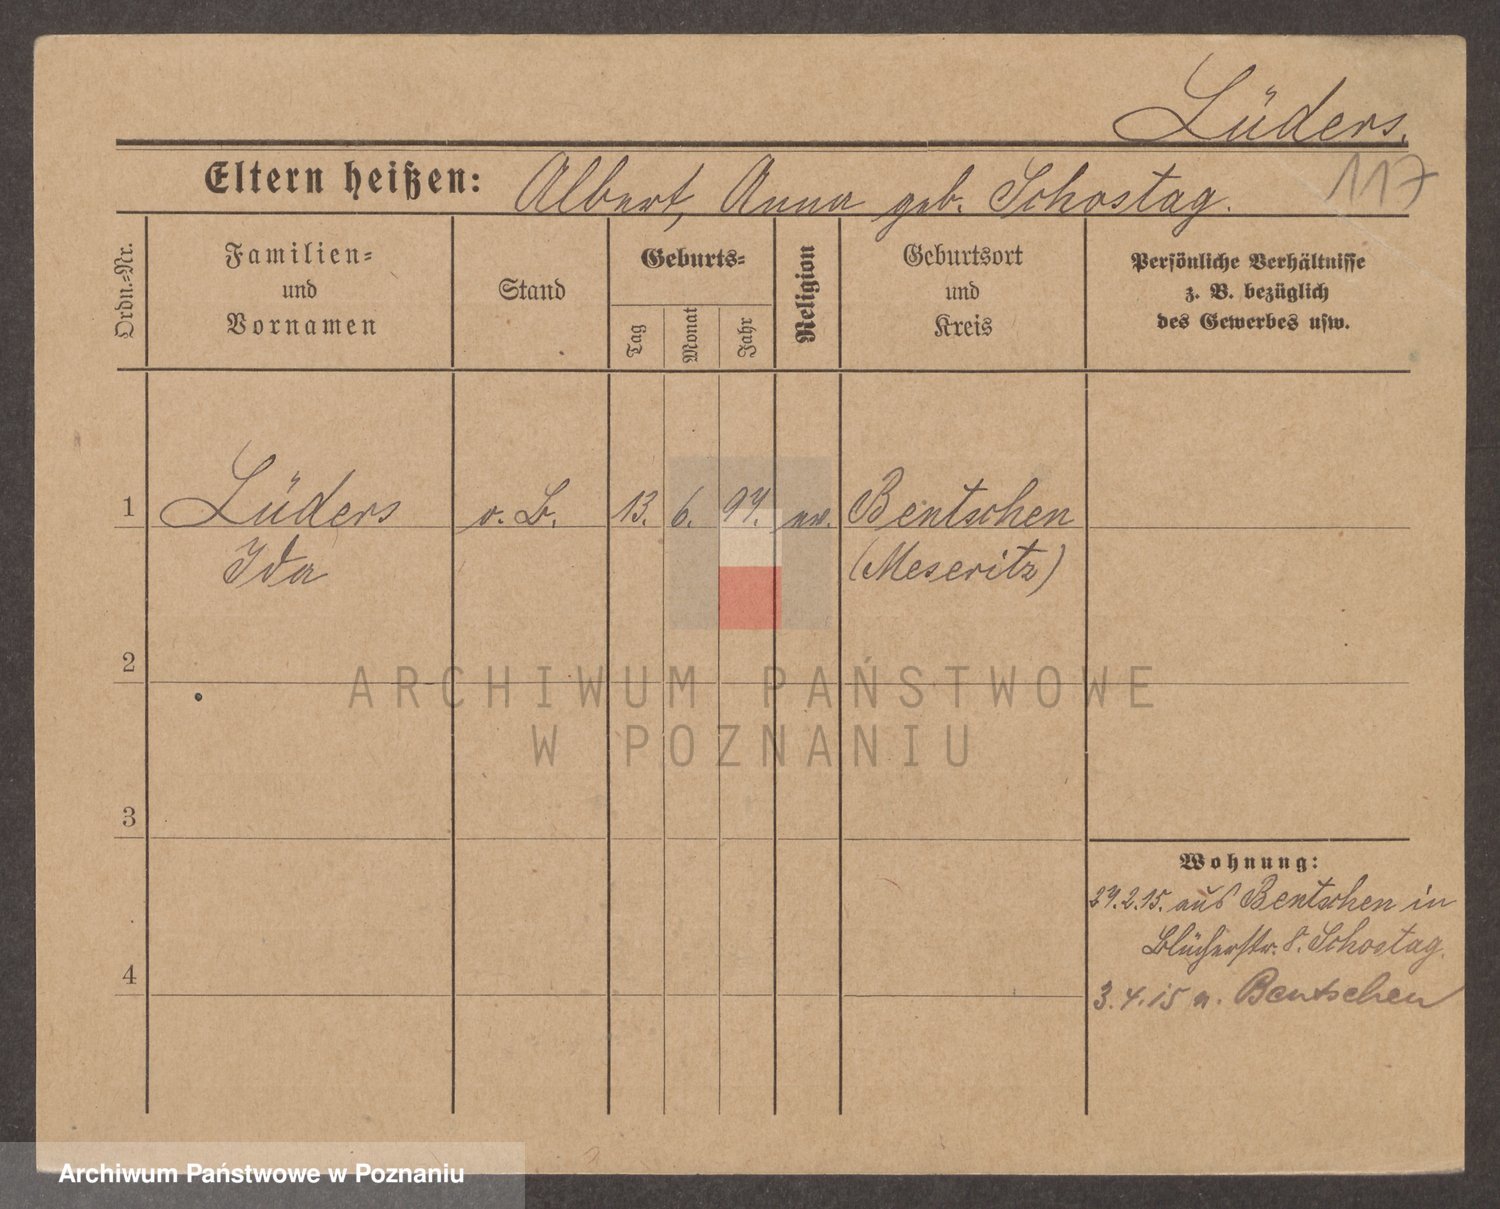 Lüders.
117
Eltern heißen: Albert, Anna geb. Schostag.
Ordn.=Nr.
Familien=
und
Vornamen
Stand
Geburts=
Tag
Monat
Jahr
Religion
Geburtsort
und
Kreis
Persönliche Verhältnisse
z. B. bezüglich
des Gewerbes usw.
1 Lüders o. B. 13. 6. 97. ev. Bentschen
Ida (Meseritz)
2
3
4
Wohnung:
27.2.15. aus Bentschen in
Blücherstr. 8. Schostag.
3.4.15 n. Bentschen
ARCHIWUM PAŃSTWOWE
W POZNANIU
Archiwum Państwowe w Poznaniu